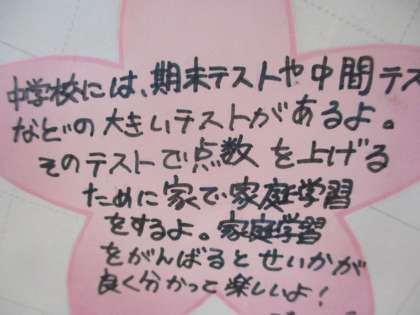 中学校には、期末テストや中間テス
などの大きいテストがあるよ。
そのテストで点数を上げる
ために家で家庭学習
をするよ。家庭学習
をがんばるとせいかが
良く分かって楽しいよ！